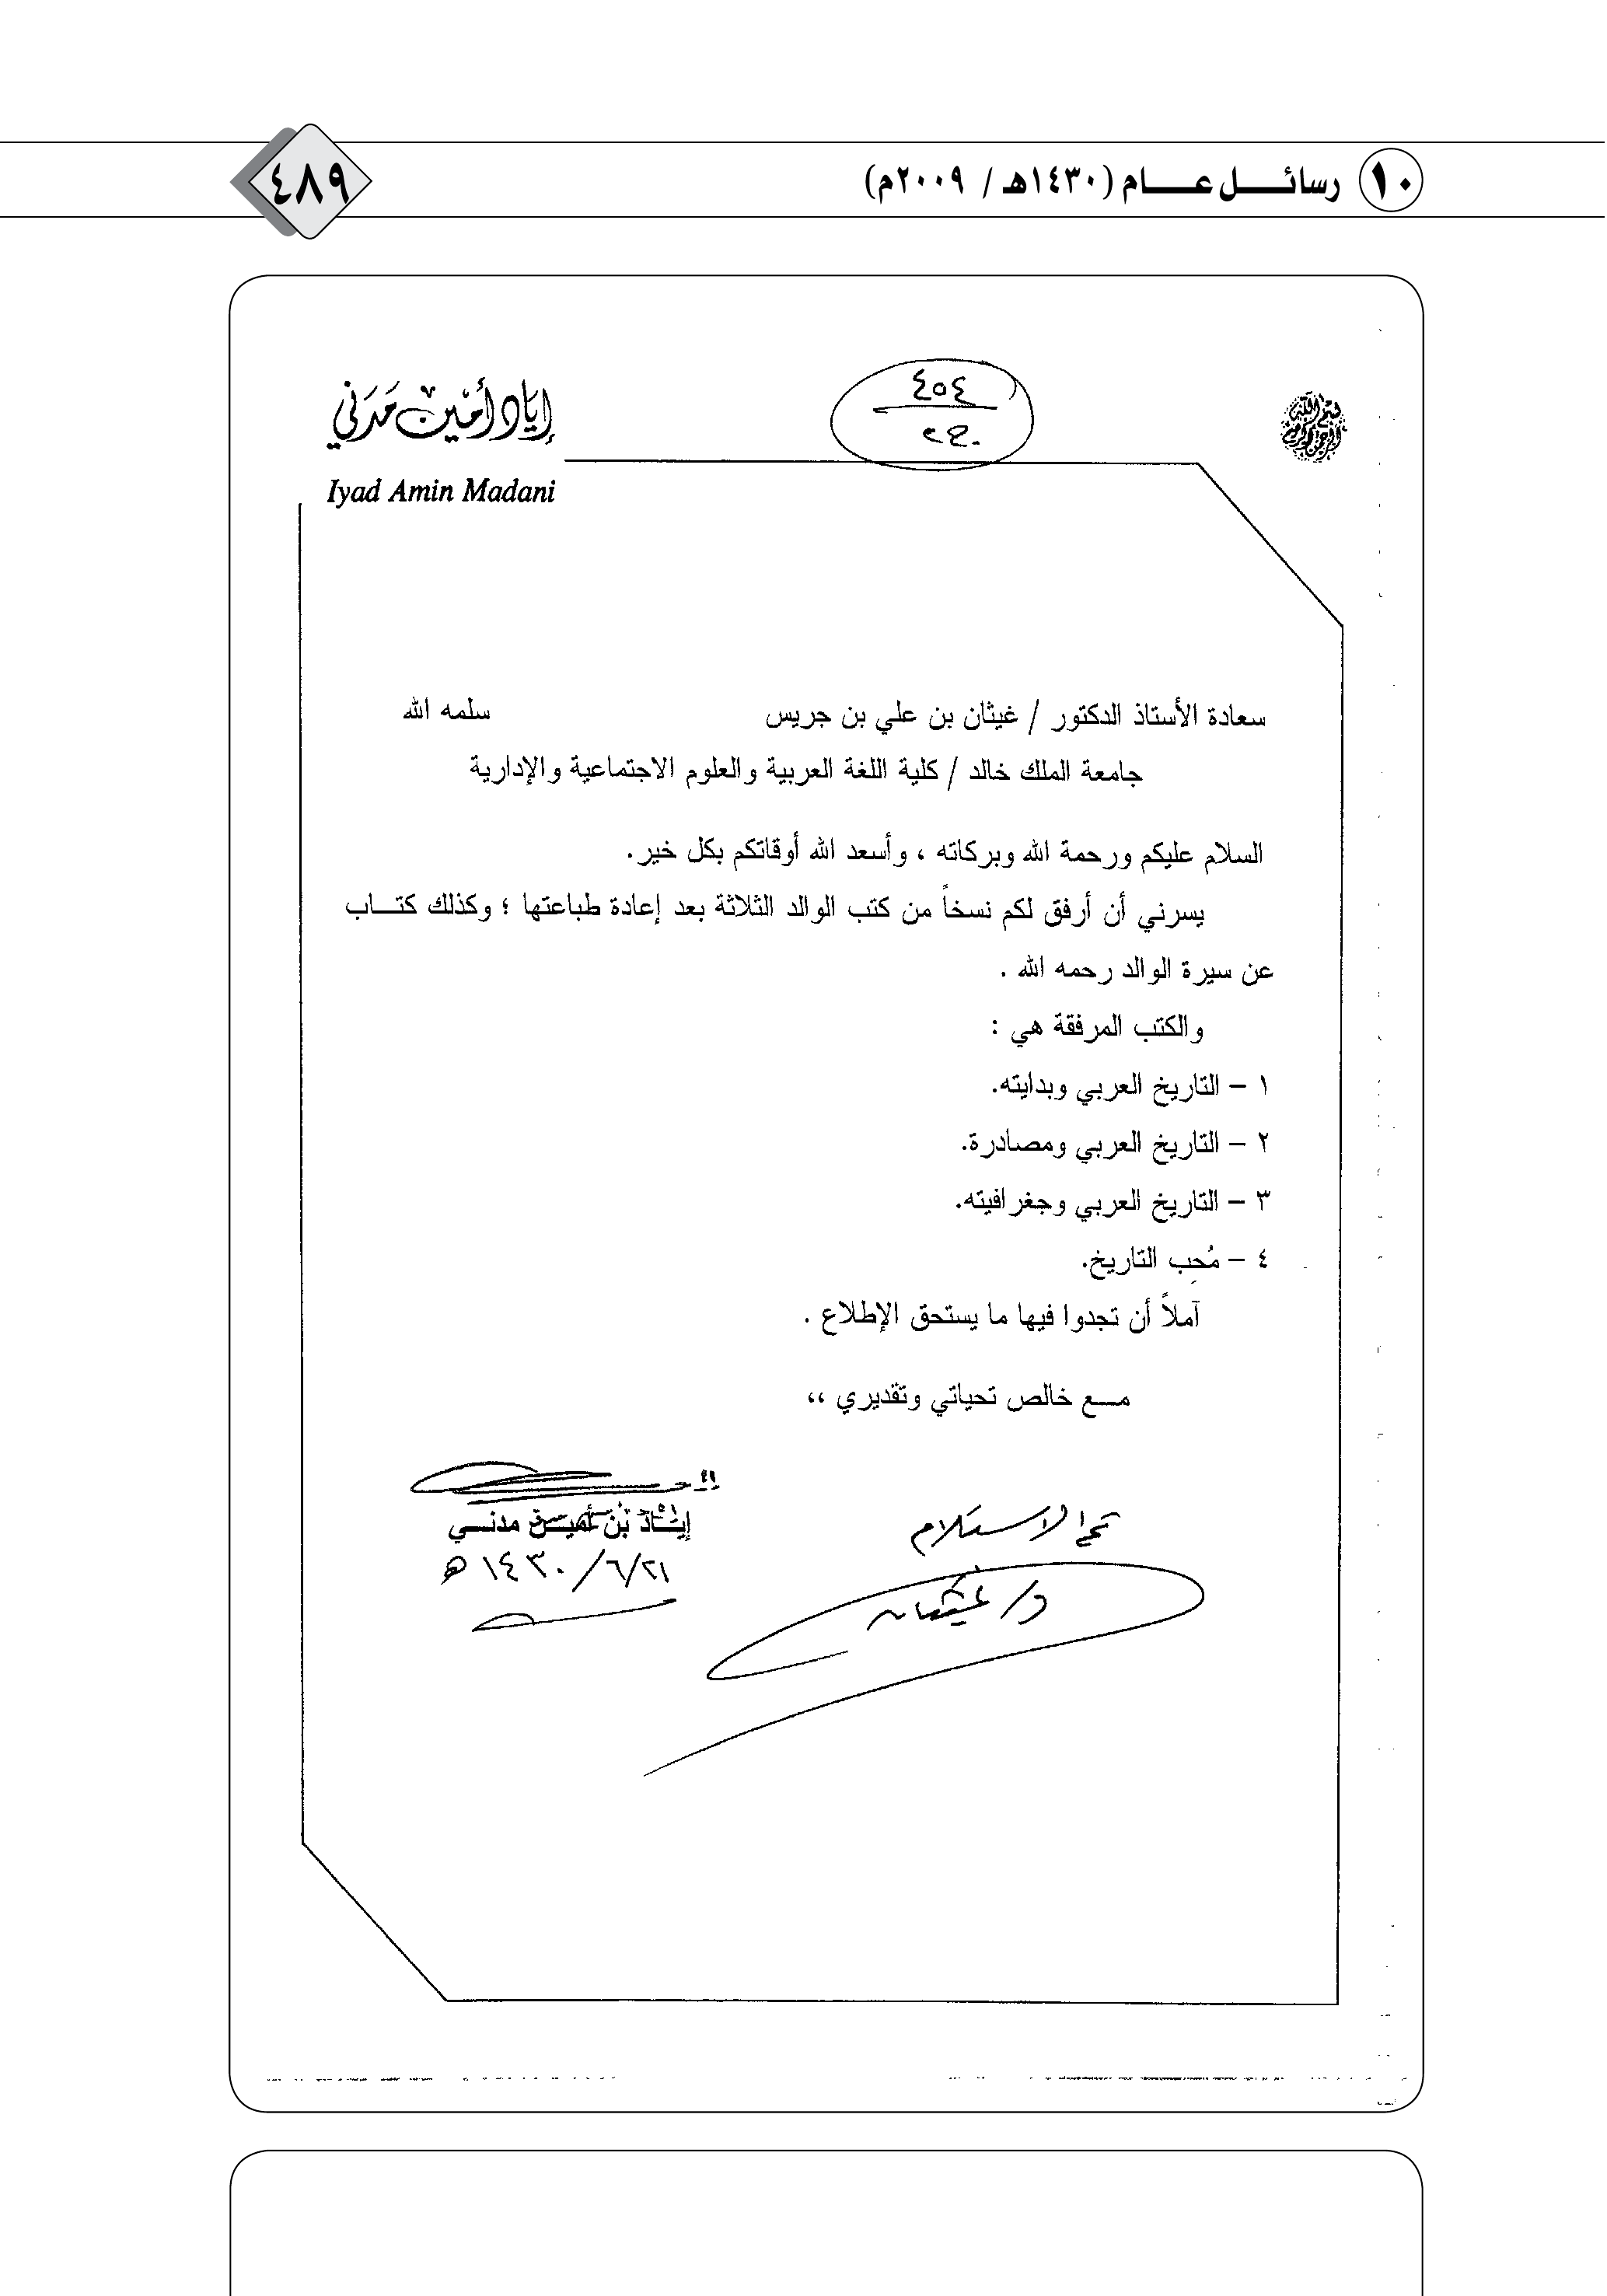 ١٠ رسائـــل عــــام (١٤٣٠هـ / ٢٠٠٩م)
٤٨٩
إياد أمين مدني
Iyad Amin Madani
٤٥٤
سعادة الأستاذ الدكتور / غيثان بن علي بن جريس سلمه الله
جامعة الملك خالد / كلية اللغة العربية والعلوم الاجتماعية والإدارية
السلام عليكم ورحمة الله وبركاته ، وأسعد الله أوقاتكم بكل خير.
يسرني أن أرفق لكم نسخاً من كتب الوالد الثلاثة بعد إعادة طباعتها ؛ وكذلك كتـــاب
عن سيرة الوالد رحمه الله .
والكتب المرفقة هي :
١ – التاريخ العربي وبدايته.
٢ – التاريخ العربي ومصادرة.
٣ – التاريخ العربي وجغرافيته.
٤ – مُحِب التاريخ.
آملاً أن تجدوا فيها ما يستحق الإطلاع .
مـــع خالص تحياتي وتقديري ،،
إيـــاد بن أميـــن مدنـــي
١٤٣٠/٦/٢١ هـ
تم الاستلام
د/ غيثان